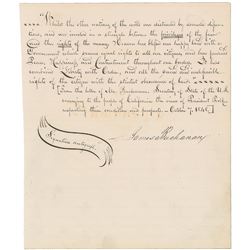 "Whilst the other nations of the earth are distracted by domestic dissen-
sions, and are involved in a struggle between the privileges of the few
and the rights of the many, Heaven has blessed our happy land with a
Government which secures equal rights to all our citizens, and has produced
Peace, Happiness, and Contentment throughout our borders. It has
combined Liberty with Order, and all the sacred and indefeasible
rights of the citizen with the strictest observance of law."
[From the letter of Mr. Buchanan, Secretary of State of the U.S.
to the people of California the views of President Polk
respecting their condition and prospects. October 7, 1848.]
James Buchanan
Signature autograph.